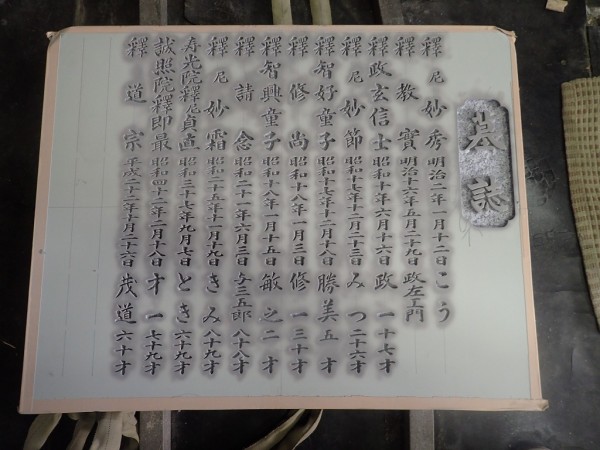 墓誌
釋尼妙秀 明治二年一月十二日 こう
釋教寶 明治十六年五月二十九日 政左エ門
釋政玄信士 昭和十年六月十六日 政一 十七才
釋尼妙節 昭和十七年十二月二十三日 みつ 二十六才
釋智好童子 昭和十七年十二月十八日 勝美 五才
釋修尚 昭和十八年一月三日 修一 三十才
釋智興童子 昭和十八年一月十五日 敏之 二才
釋請念 昭和二十一年六月三日 与三五郎 八十八才
釋尼妙霜 昭和二十五年十一月十九日 きみ 八十九才
寿光院釋尼貞直 昭和三十七年九月七日 とき 六十九才
誠照院釋即最 昭和四十二年二月十八日 才一 七十九才
釋道宗 平成二十二年十月二十六日 茂道 六十才